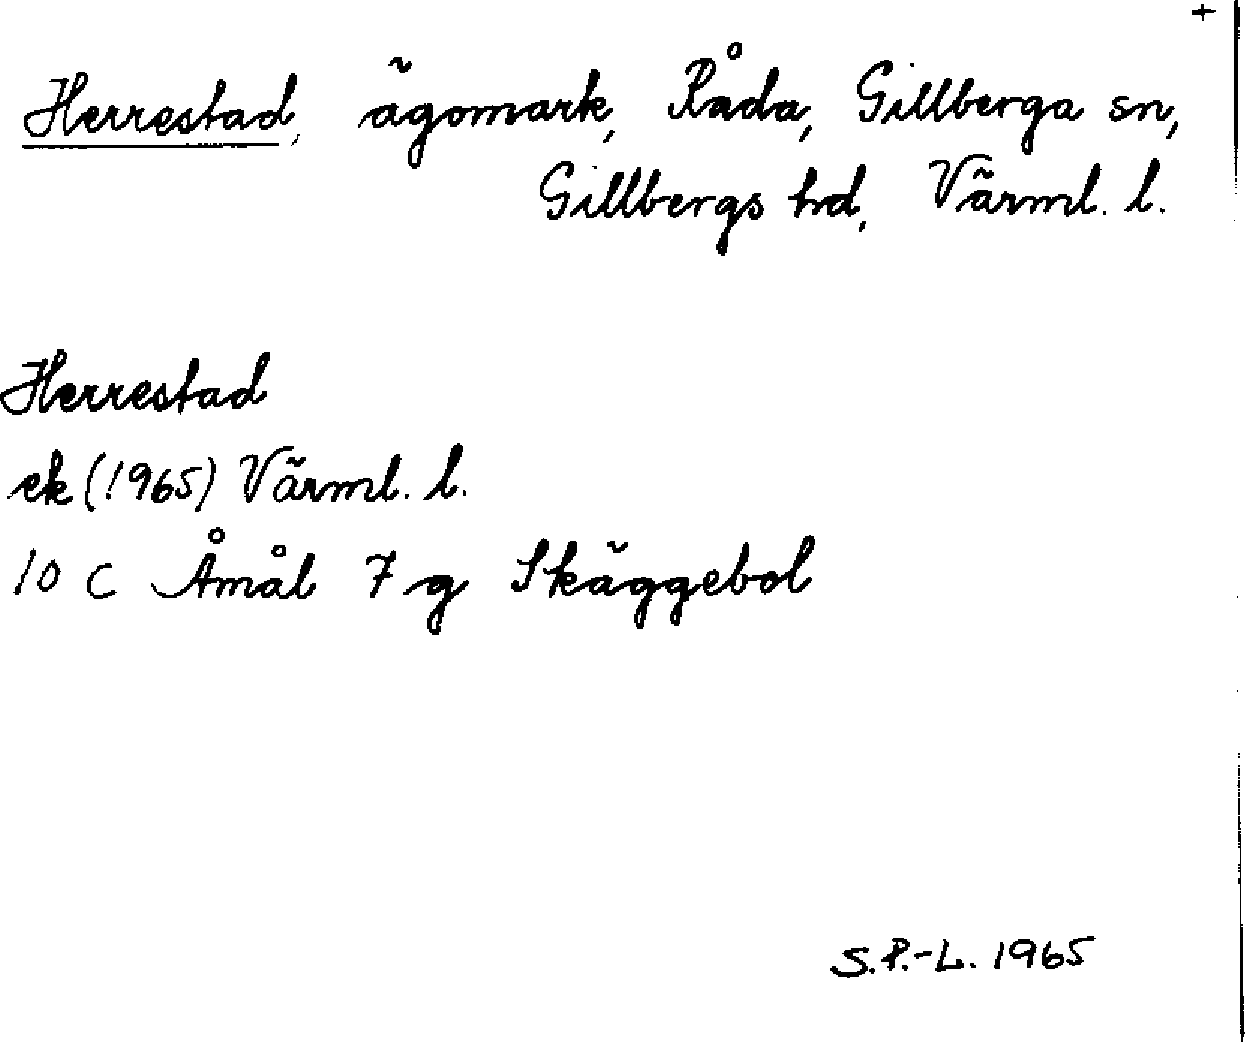 +
Herrestad, ägomark, Råda, Gillberga sn,
Gillbergs hd, Värml. l.
Herrestad
ek (1965) Värml. l.
10 C Åmål 7 g Skäggebol
S.P.-L. 1965